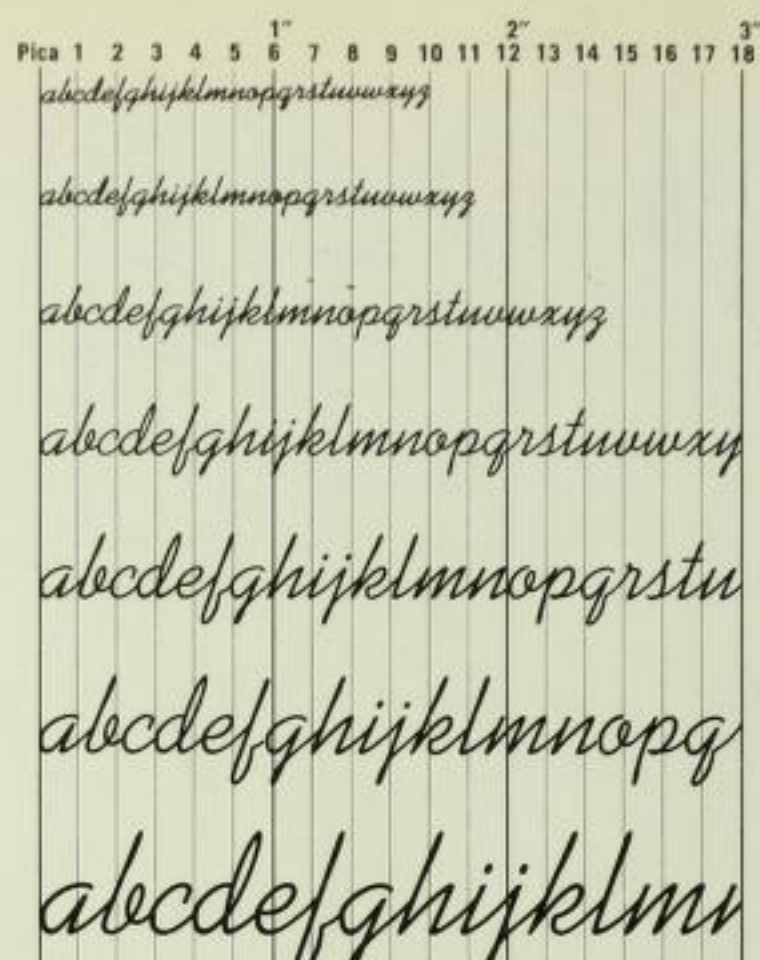 1" 2" 3"
Pica 1 2 3 4 5 6 7 8 9 10 11 12 13 14 15 16 17 18
abcdefghijklmnopqrstuvwxyz
abcdefghijklmnopqrstuvwxyz
abcdefghijklmnopqrstuvwxyz
abcdefghijklmnopqrstuvwxy
abcdefghijklmnopqrstu
abcdefghijklmnopq
abcdefghijklm